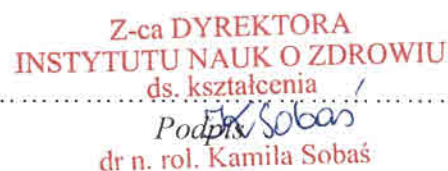 Z-ca DYREKTORA
INSTYTUTU NAUK O ZDROWIU
ds. kształcenia
Podpis Sobaś
dr n. rol. Kamila Sobaś